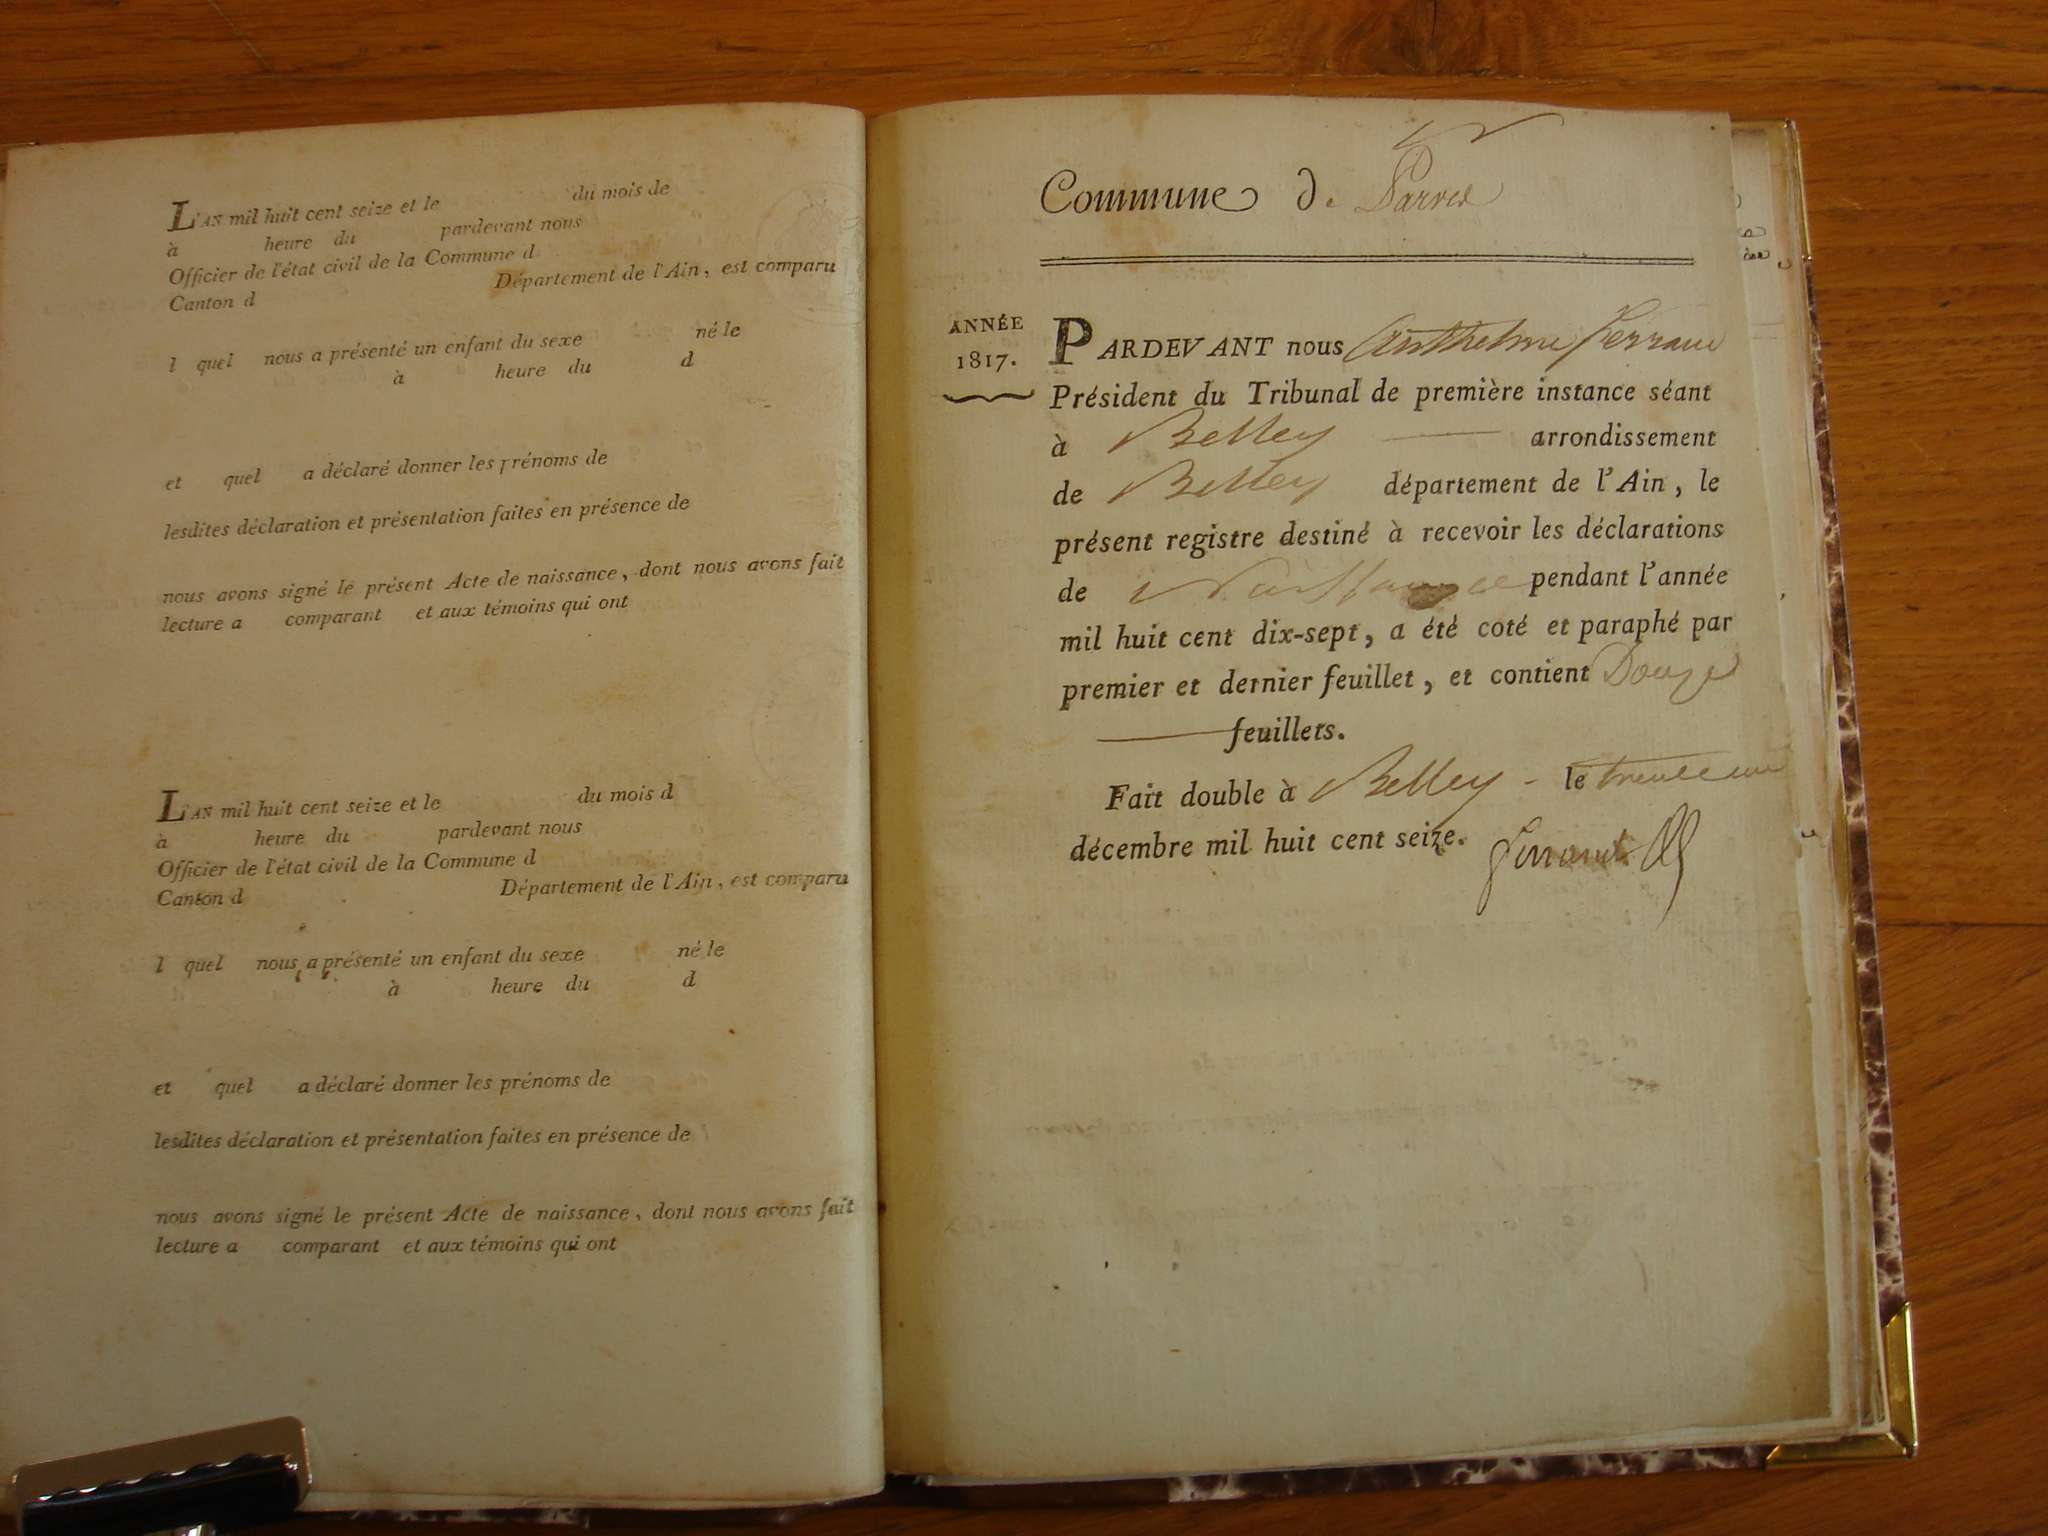 L'AN mil huit cent seize et le du mois de
à heure du pardevant nous
Officier de l'état civil de la Commune d
Canton d Département de l'Ain, est comparu
l quel nous a présenté un enfant du sexe né le
à heure du d
et quel a déclaré donner les prénoms de
lesdites déclaration et présentation faites en présence de
nous avons signé le présent Acte de naissance, dont nous avons fait
lecture a comparant et aux témoins qui ont
L'AN mil huit cent seize et le du mois d
à heure du pardevant nous
Officier de l'état civil de la Commune d
Canton d Département de l'Ain, est comparu
l quel nous a présenté un enfant du sexe né le
à heure du d
et quel a déclaré donner les prénoms de
lesdites déclaration et présentation faites en présence de
nous avons signé le présent Acte de naissance, dont nous avons fait
lecture a comparant et aux témoins qui ont
Commune de Parves
ANNÉE
1817.
PARDEVANT nous Anthelme Ferrand
Président du Tribunal de première instance séant
à Belley arrondissement
de Belley département de l'Ain, le
présent registre destiné à recevoir les déclarations
de Naissance pendant l'année
mil huit cent dix-sept, a été coté et paraphé par
premier et dernier feuillet, et contient Douze
feuillets.
Fait double à Belley le trente un
décembre mil huit cent seize.